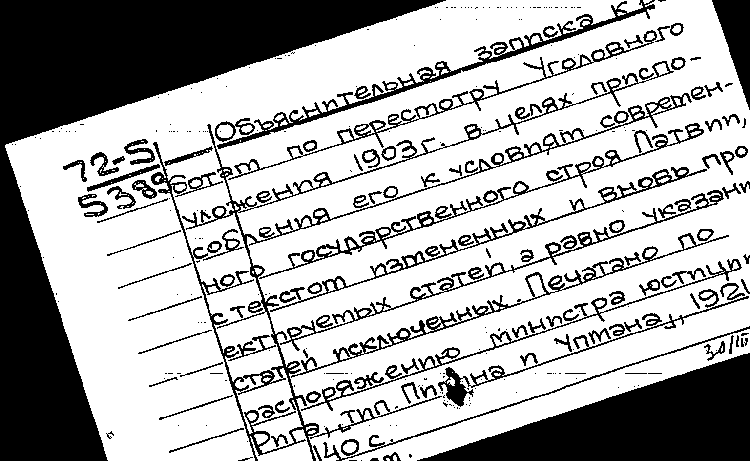 72-5
5389
Объяснительная записка к р-
ботам по пересмотру Уголовного
уложения 1903 г. в целях приспо-
собления его к условиям современ-
ного государственного строя Латвии,
с текстом измененных и вновь про
ектируемых статей, а равно указани
статей исключенных. Печатано по
распоряжению министра юстиции
Рига, тип. и Упмана, 1921
140 с.
30/III